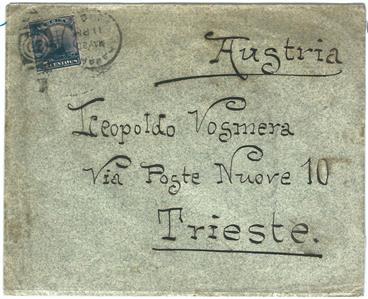 Austria
Leopoldo Vosmera
Via Poste Nuove 10
Trieste.